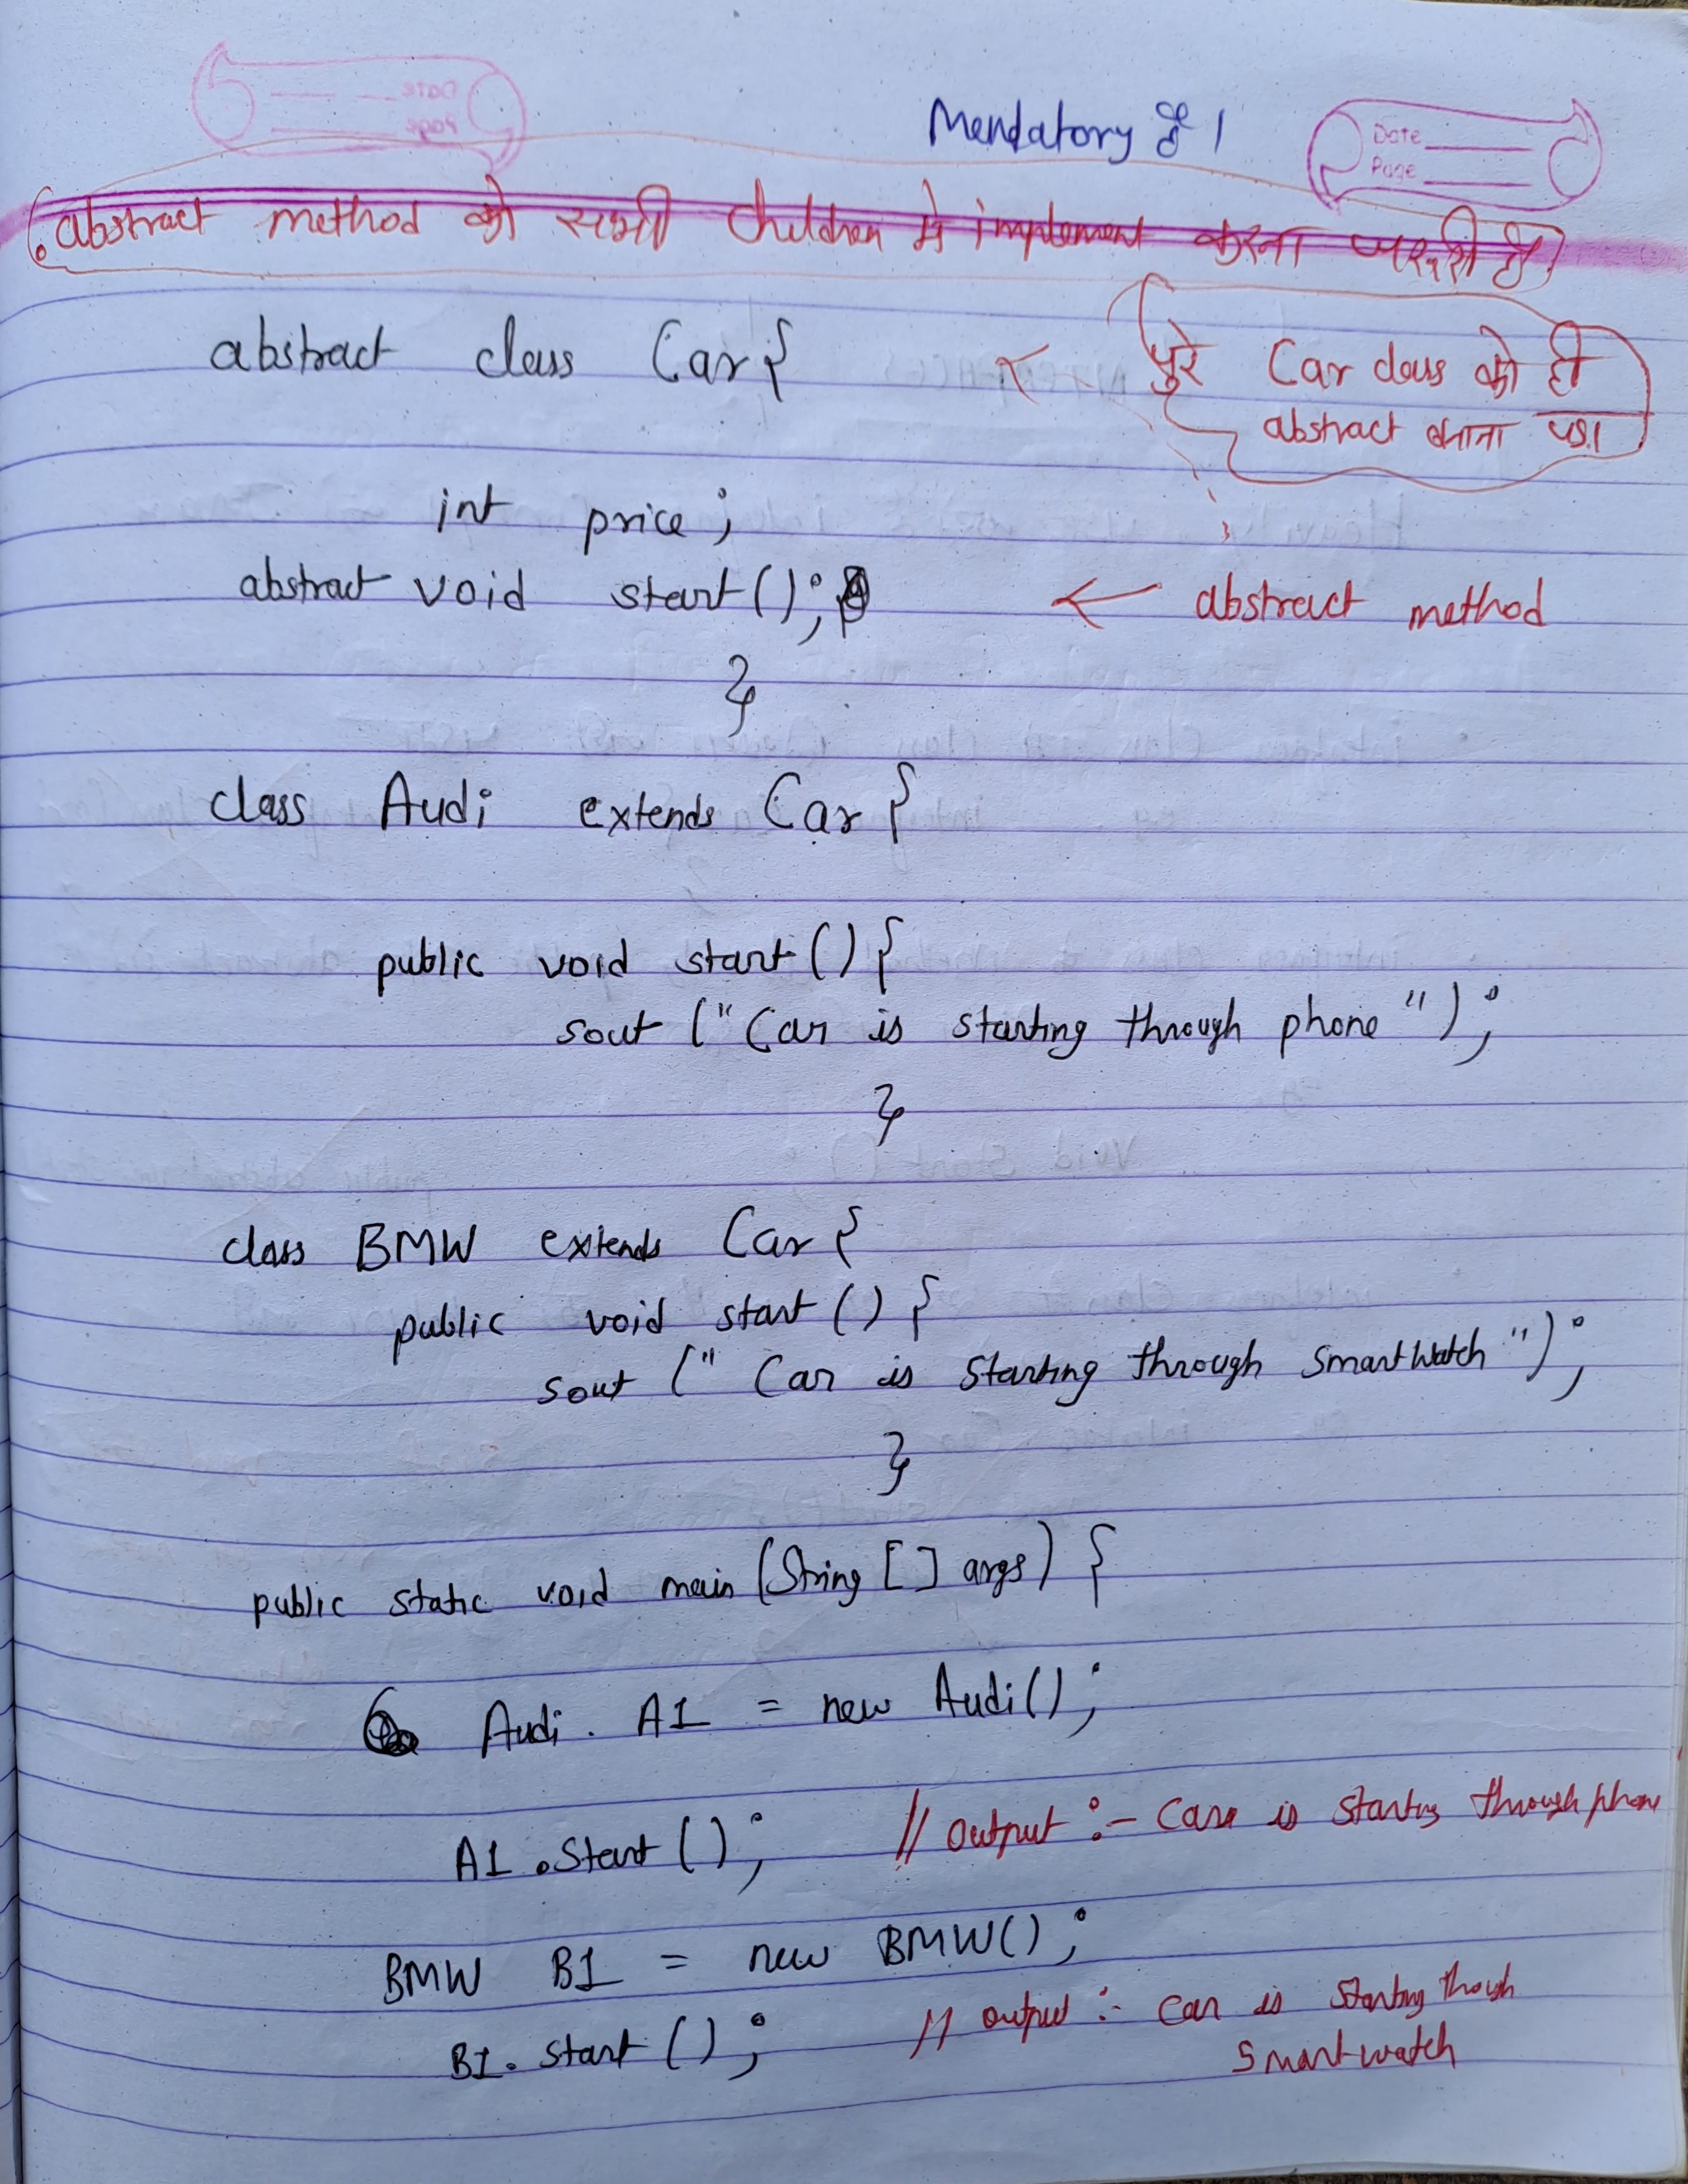 Mendatory है।
Date
Page
• abstract method को सभी children मे implement करना जरूरी है।
abstract class Car{
पुरे Car class को ही
abstract बनाना पडा
int price;
abstract void start();
← abstract method
}
class Audi extends Car{
public void start(){
sout ("Car is starting through phone");
}
class BMW extends Car{
public void start(){
sout (" Car is Starting through SmartWatch");
}
public static void main (String [] args) {
Audi. A1 = new Audi();
A1.Start(); // output :- Car is starting through phone
BMW B1 = new BMW();
B1. Start(); // output :- Car is starting though
Smartwatch